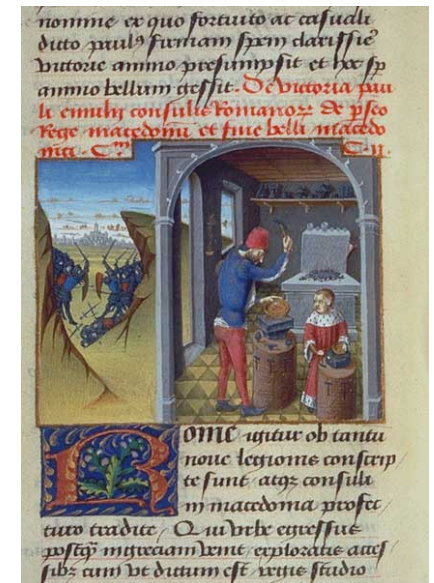 nomine ex quo fortuito ac casuali
dicto paulus firmam spem clarissie
victorie animo presumpsit et hoc sp
animo bellum gessit. De victoria pau
li emilii consulis Romanorum de pseo
Rege macedonū et fine belli macedo
nici. C.m C. ii.
Rome igitur ob tantu
noue legiones conscrip
te sunt atqz consuli
in macedonia profec
turo tradite. Qui vrbe egressus
postqz in greciam venit exploratis acces
sibz cum vt dictum est regis studio